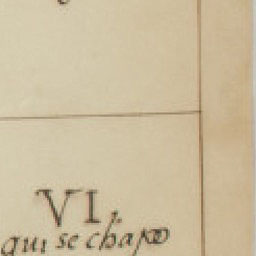 VI.
qui se cha